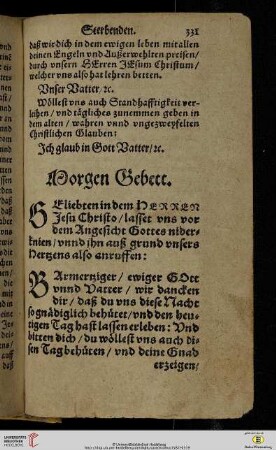 Sterbenden. 331
daß wir dich in dem ewigen leben mit allen
deinen Engeln vnd Außerwehlten preisen/
durch vnsern HErren JEsum Christum/
welcher vns also hat lehren betten.
Vnser Vatter/ ꝛc.
Wöllest vns auch Standhafftigkeit ver-
leihen/ vnd tägliches zunemmen geben in
dem alten/ wahren vnnd vngezweyfelten
Christlichen Glauben:
Jch glaub in Gott Vatter/ ꝛc.
Morgen Gebett.
GEliebten in dem HERREN
Jesu Christo/ lasset vns vor
dem Angesicht Gottes nider-
knien/ vnnd ihn auß grund vnsers
Hertzens also anruffen:
BArmertziger/ ewiger GOtt
vnnd Vatter/ wir dancken
dir/ daß du vns diese Nacht
so gnädiglich behütet/ vnd den heu-
tigen Tag hast lassen erleben: Vnd
bitten dich/ du wöllest vns auch di-
sen Tag behüten/ vnd deine Gnad
erzeigen/